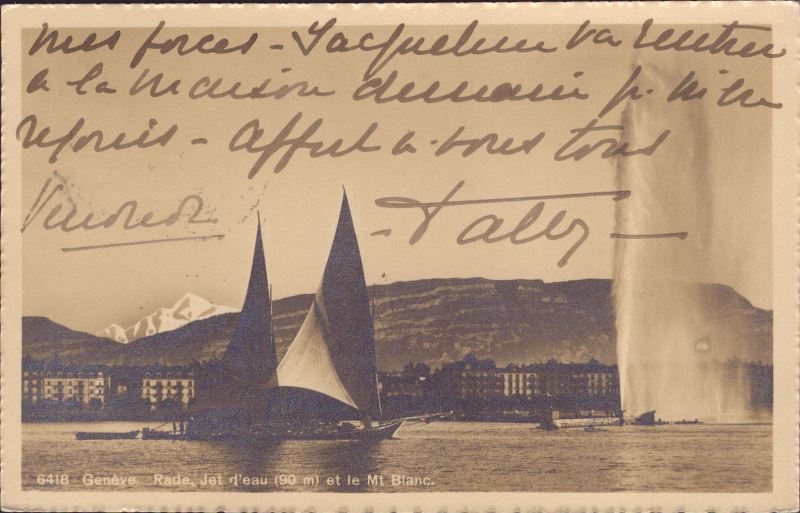 mes forces - Jacqueline va rentrer
à la maison demain p. mihi
reforis - Affet à vous tous
Vendredi
- Tally -
6418 Genève. Rade, Jet d'eau (90 m) et le Mt Blanc.